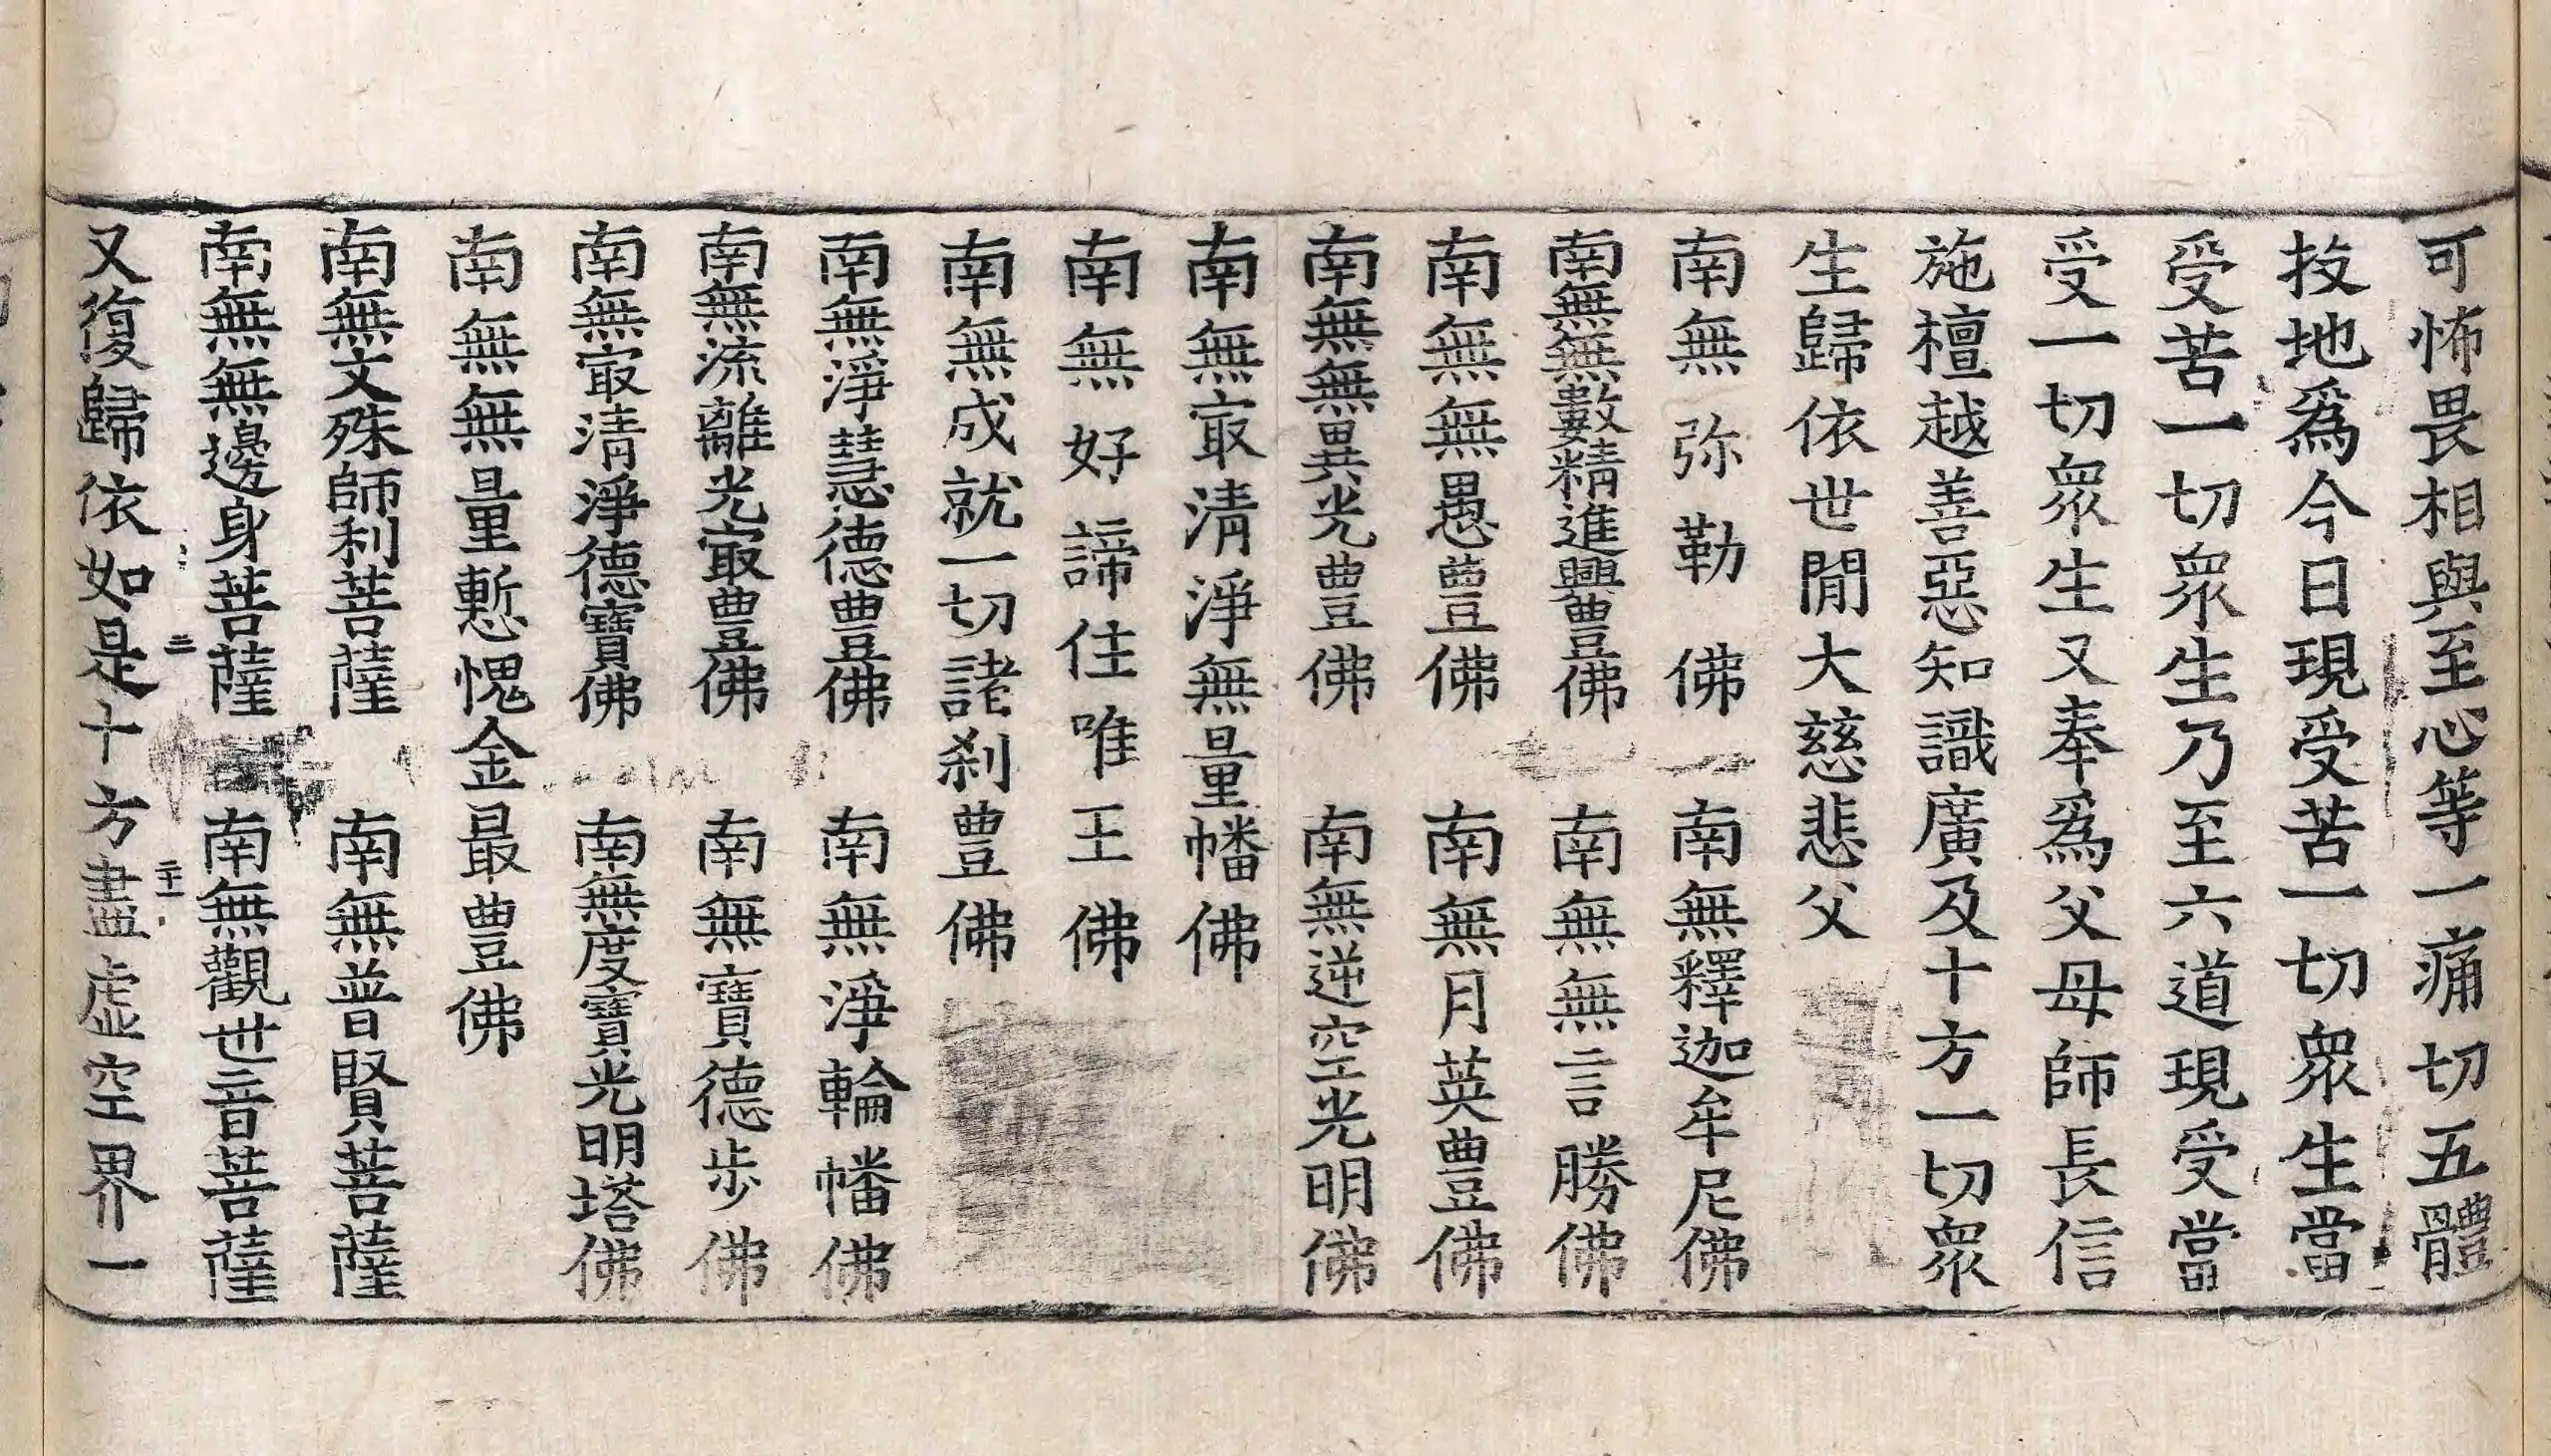 可怖畏相與至心等一痛切五體
投地爲今日現受苦一切衆生當
受苦一切衆生乃至六道現受當
受一切衆生又奉爲父母師長信
施檀越善惡知識廣及十方一切衆
生歸依世閒大慈悲父
南無弥勒佛 南無釋迦牟尼佛
南無無數精進興豊佛 南無無言勝佛
南無無愚豊佛 南無月英豊佛
南無無異光豊佛 南無逆空光明佛
南無㝡清淨無量幡佛
南無好諦住唯王佛
南無成就一切諸刹豊佛
南無淨慧德豊佛 南無淨輪幡佛
南無流離光㝡豊佛 南無寶德步佛
南無㝡清淨德寶佛 南無度寶光明塔佛
南無無量慙愧金最豊佛
南無文殊師利菩薩 南無普賢菩薩
南無無邊身菩薩 南無觀世音菩薩
又復歸依如是十方盡虛空界一